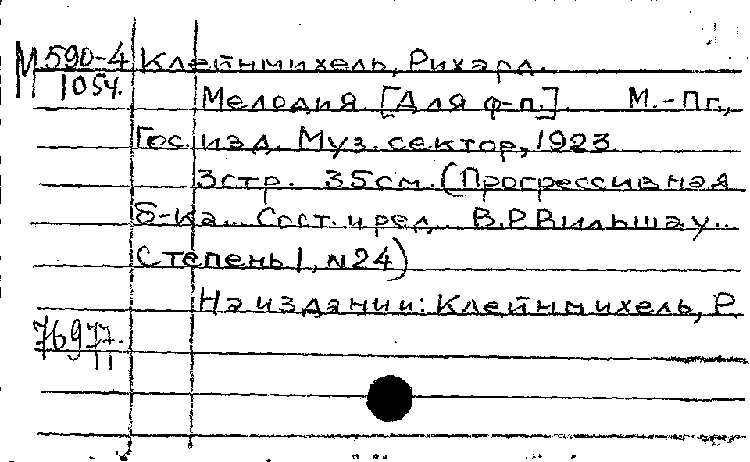 М 590-4 Клейнмихель, Рихард.
1054.
Мелодия [Для ф-п.]. М.-Пг.,
Гос. изд. Муз. сектор, 1923
3стр. 35см. (Прогрессивная
б-ка. Сост. и ред. В.Р.Вильшау.
Степень 1, N24)
На издании: Клейнмихель, Р.
76977.
II